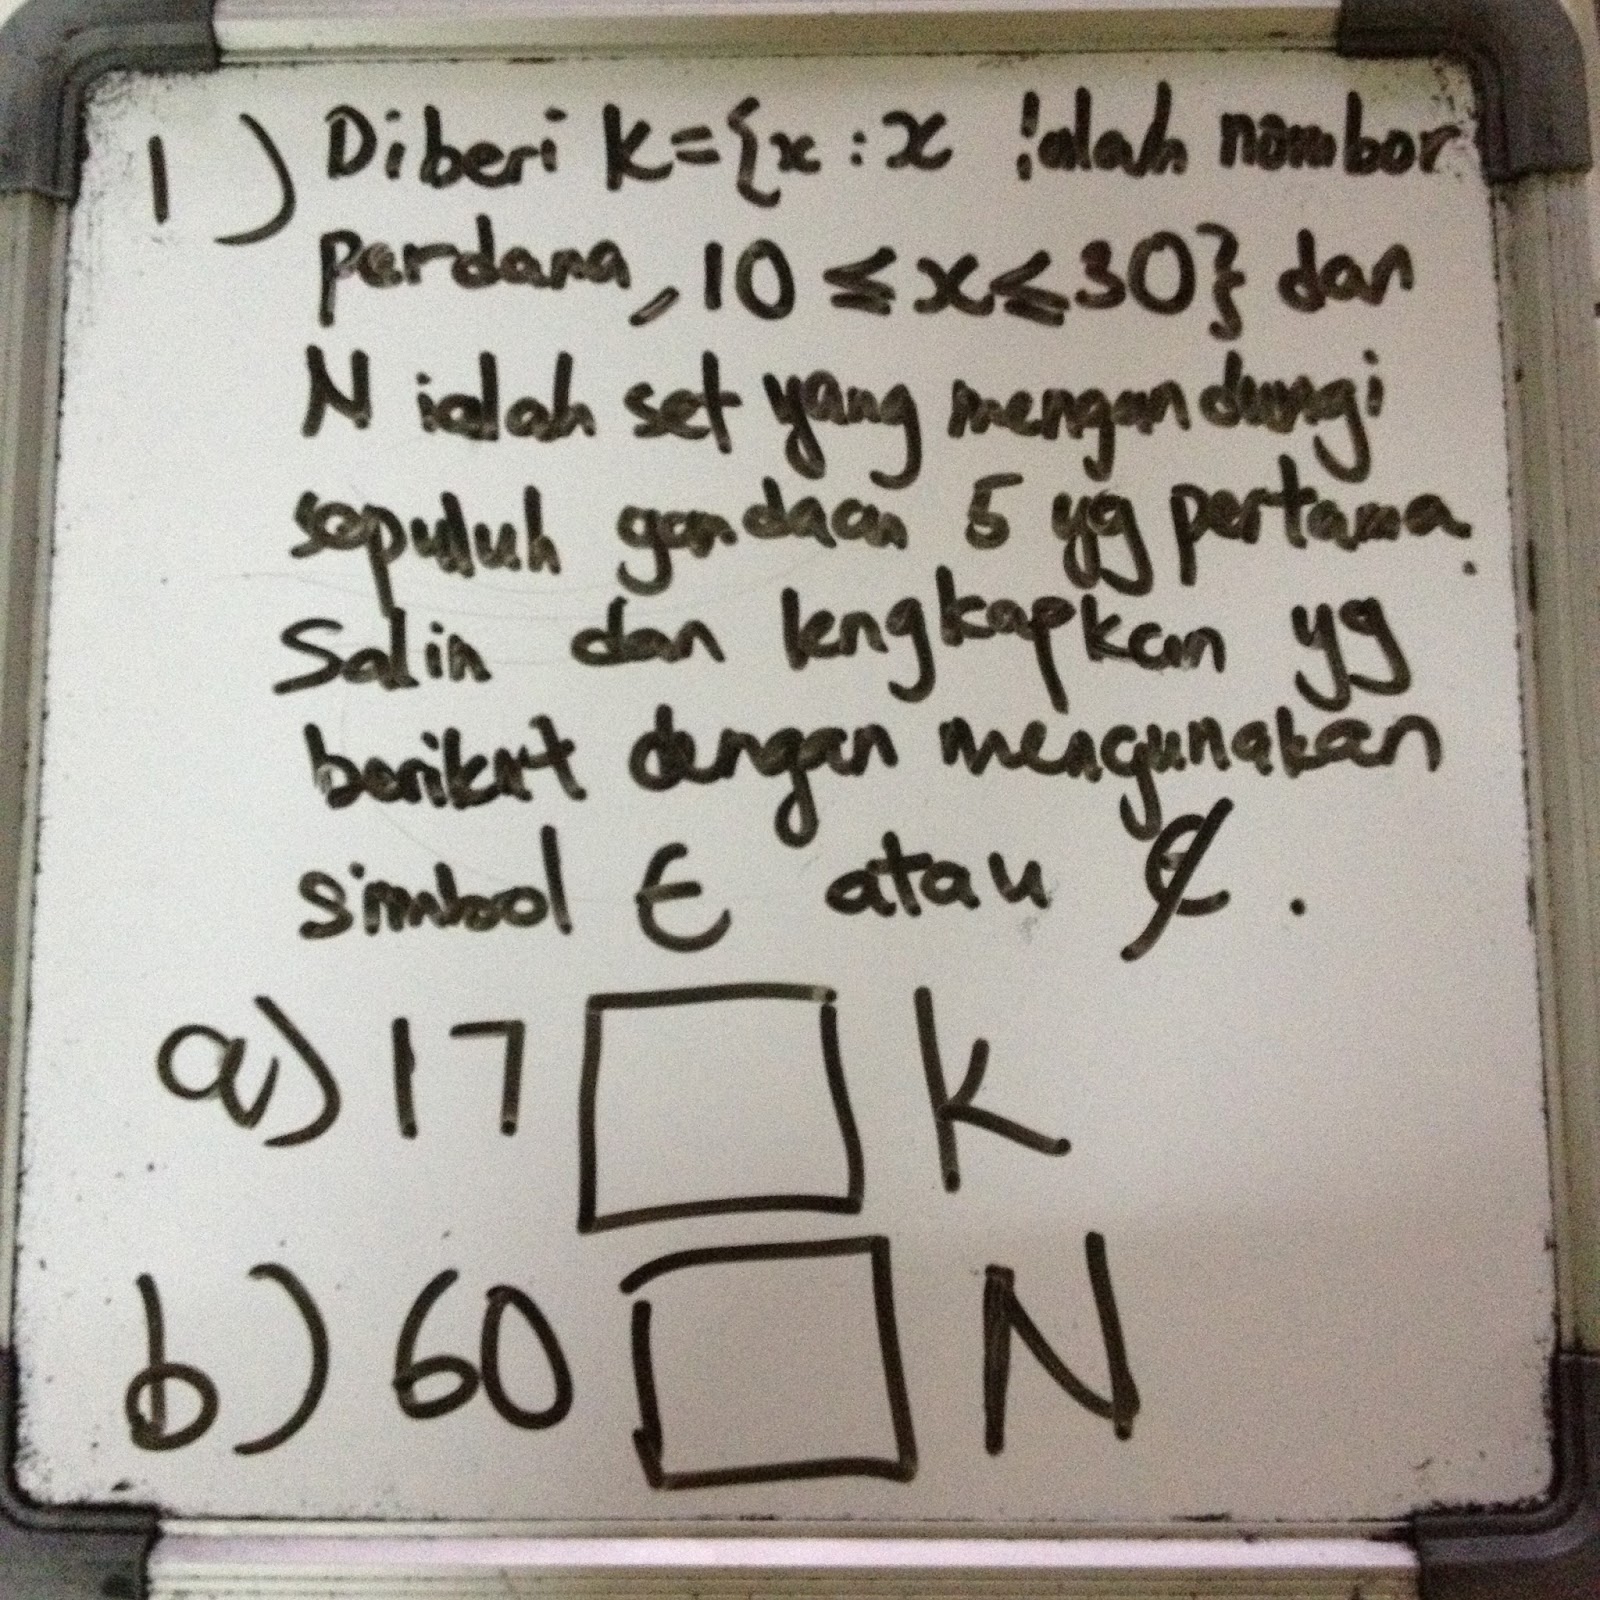 1) Diberi K={x : x ialah nombor
perdana, 10 ≤ x ≤ 30} dan
N ialah set yang mengandungi
sepuluh gandaan 5 yg pertama.
Salin dan lengkapkan yg
berikut dengan mengunakan
simbol ∈ atau ∉ .
a) 17 □ K
b) 60 □ N